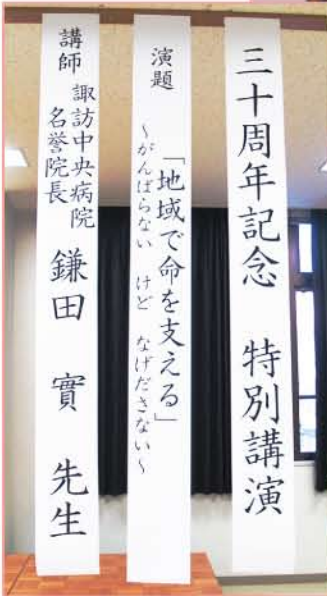 三十周年記念 特別講演
演題 「地域で命を支える」
~がんばらない けど なげださない~
講師 諏訪中央病院 名誉院長 鎌田 實 先生